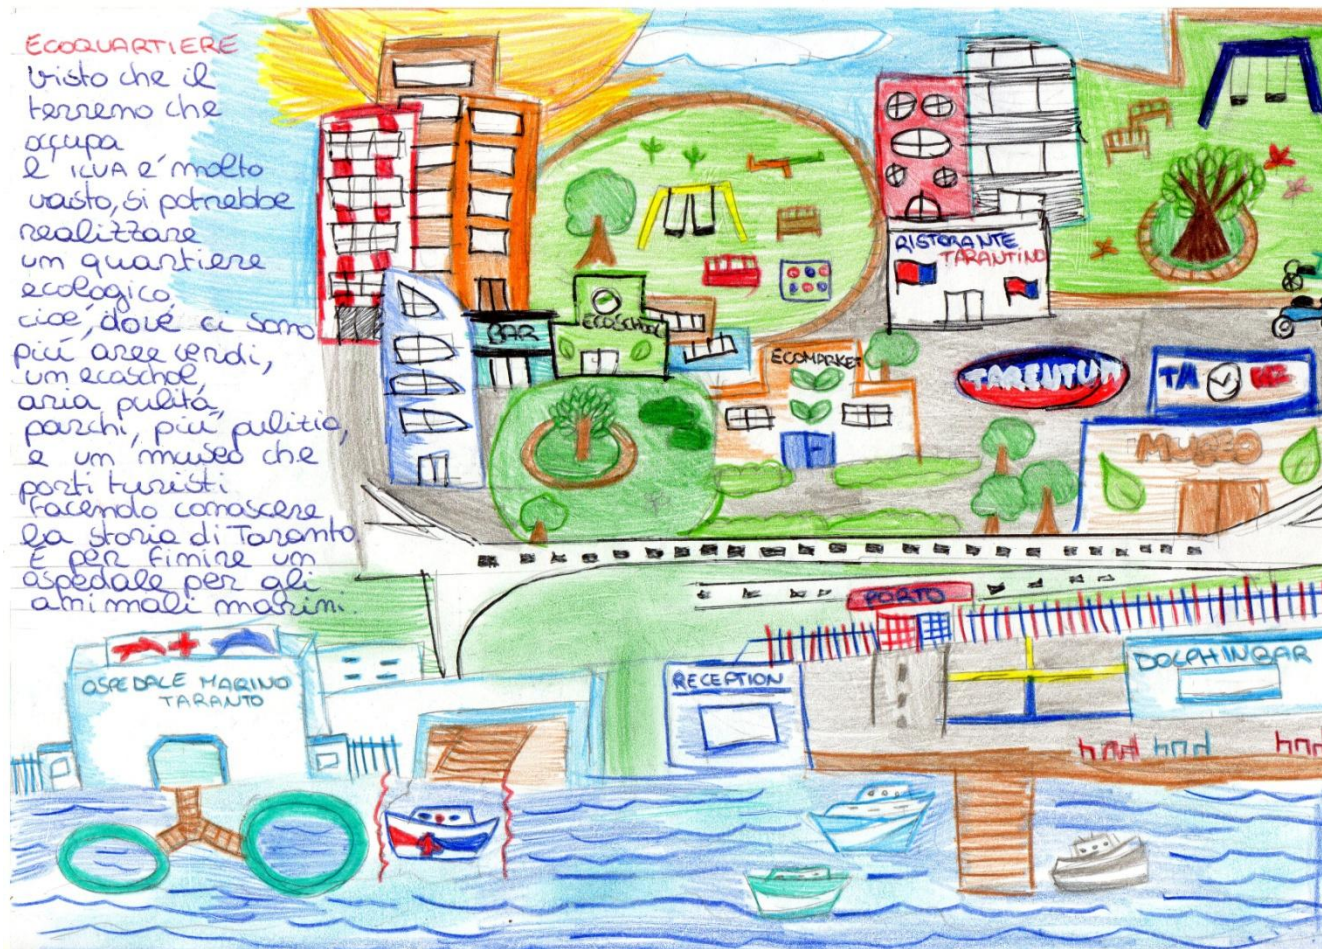 ECOQUARTIERE
visto che il
terreno che
occupa
l' ILVA é molto
vasto, si potrebbe
realizzare
un quartiere
ecologico,
cioé, dove ci sono
piú aree verdi,
un ecoschol,
aria pulita,
parchi, piú pulizia,
e un museo che
porti turisti
facendo conoscere
la storia di Taranto.
E per finire un
ospedale per gli
animali marini.
RISTORANTE
TARANTINO
BAR
ECOSCHOOL
ECOMARKET
TARENTUM
MUSEO
PORTO
OSPEDALE MARINO
TARANTO
RECEPTION
DOLPHINBAR